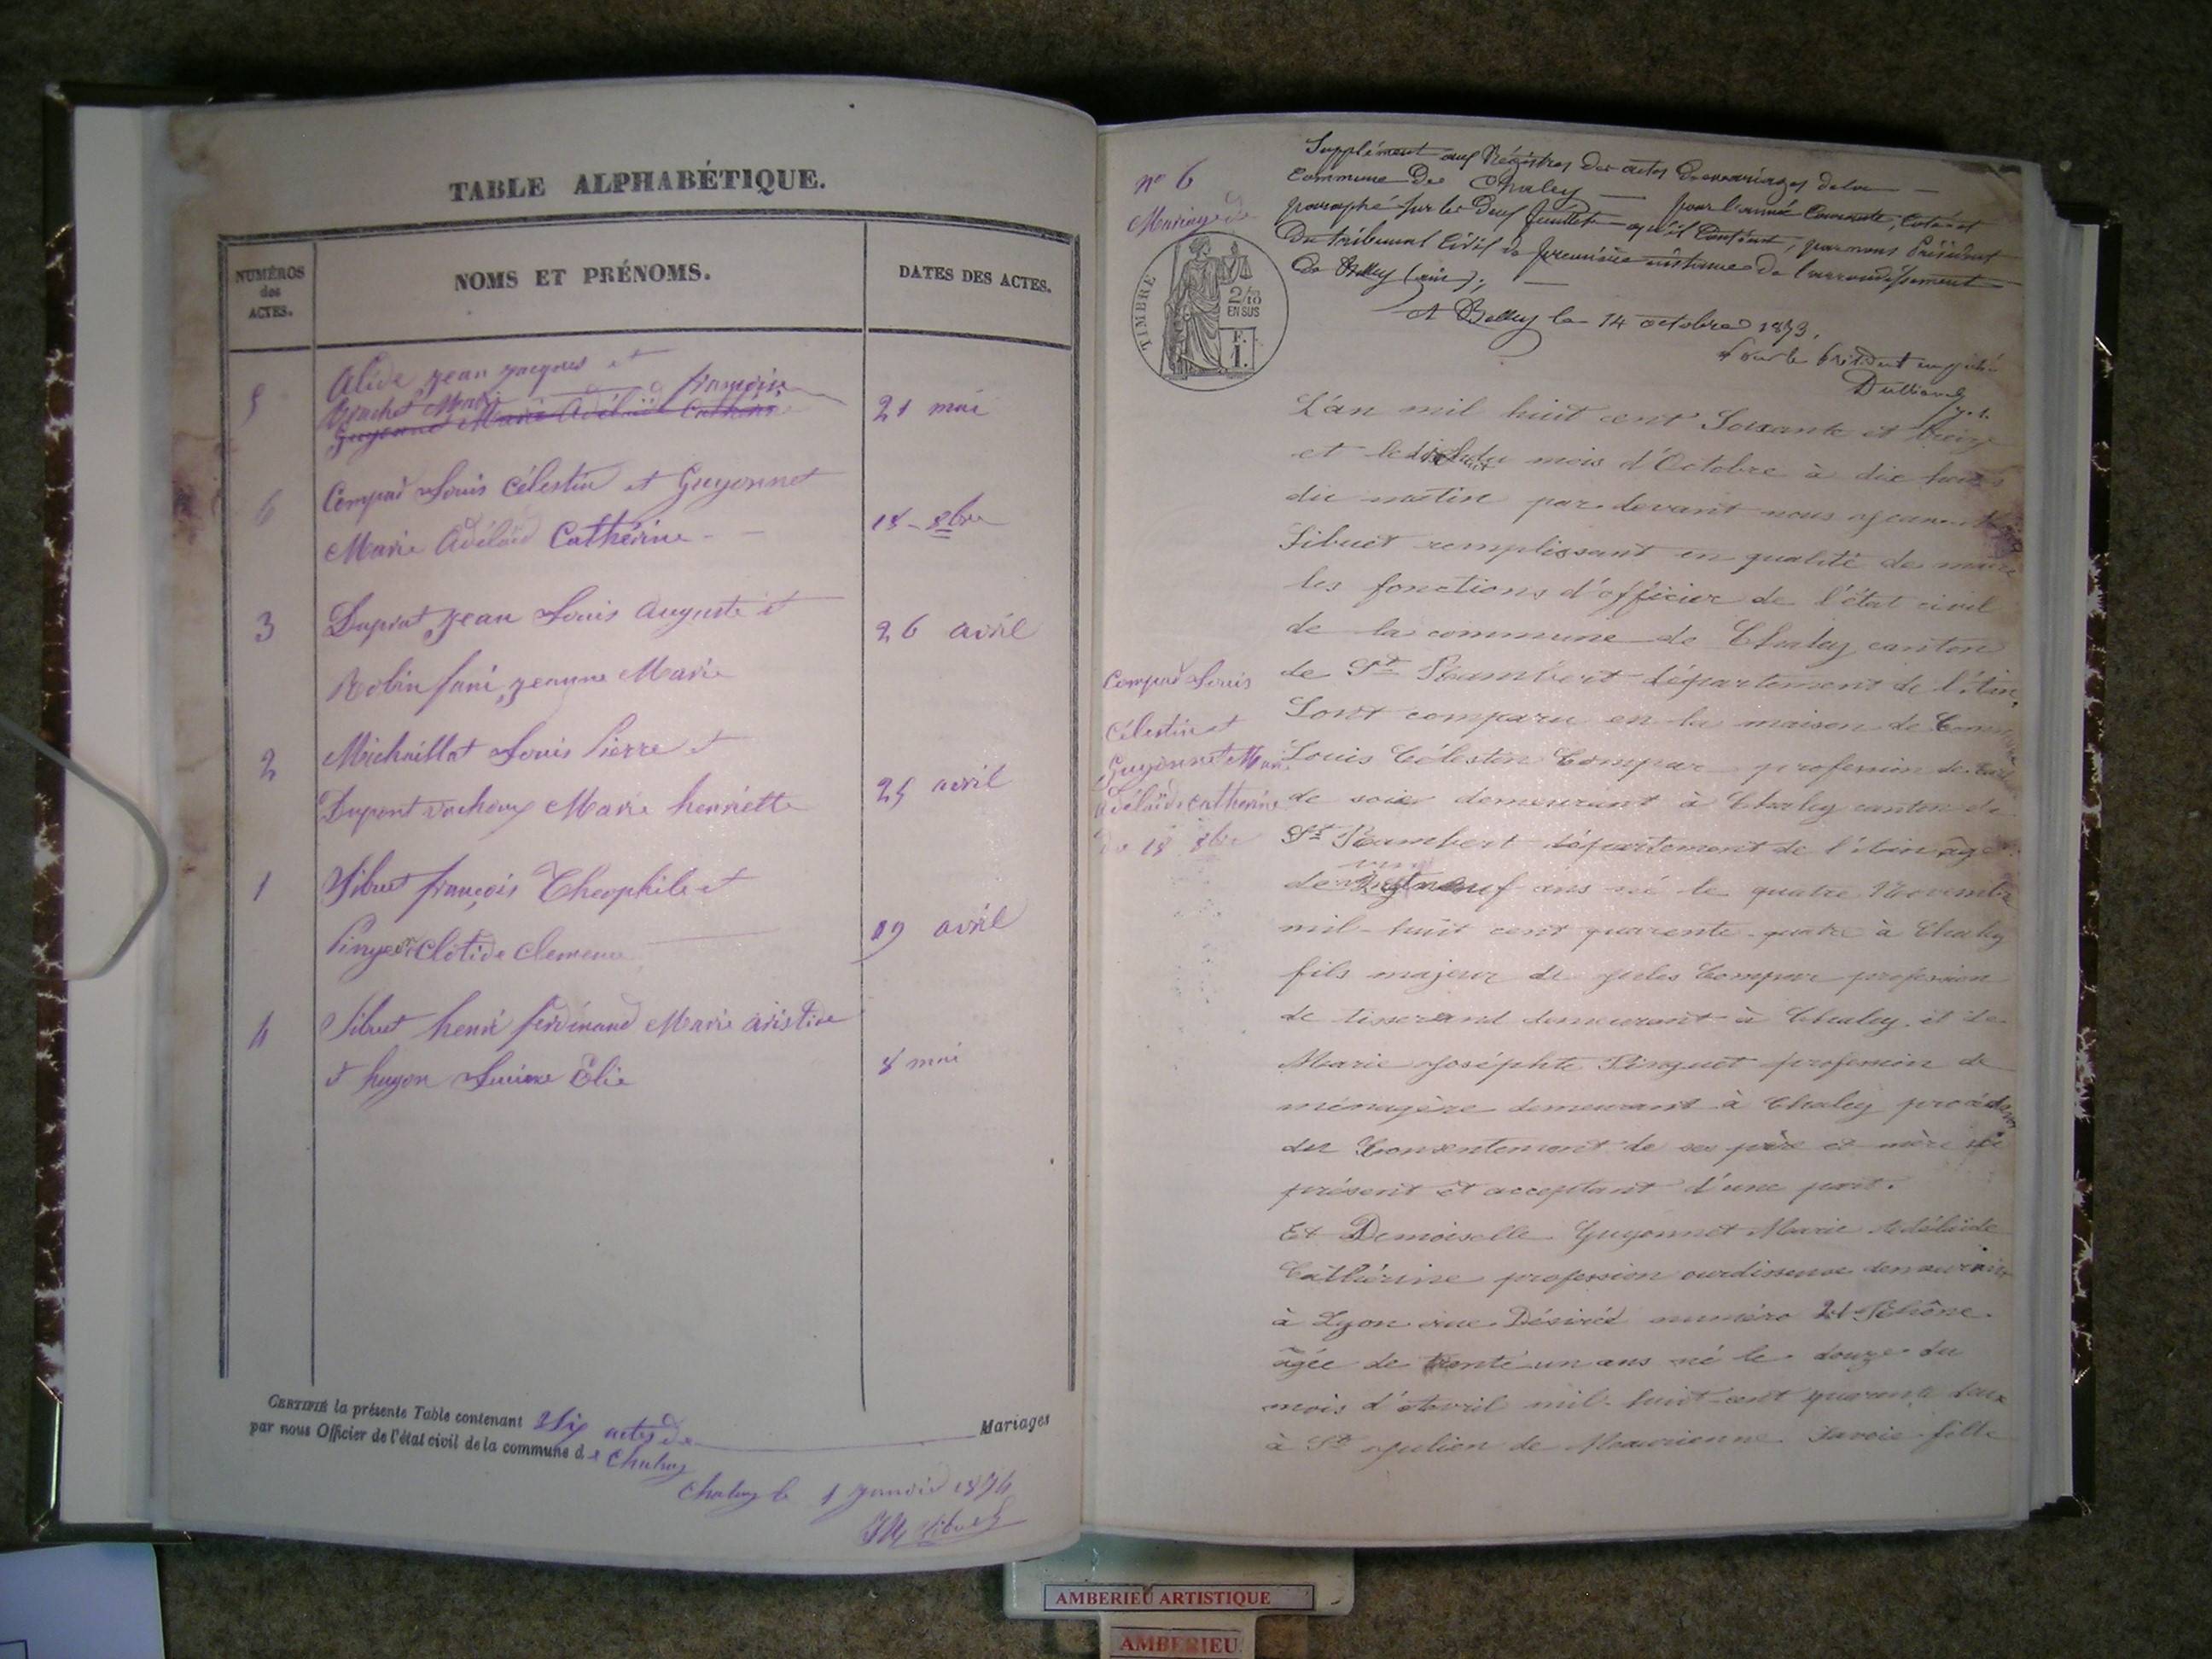 TABLE ALPHABÉTIQUE.
NUMÉROS
des
ACTES.
NOMS ET PRÉNOMS.
DATES DES ACTES.
5
Alide jean jacques et
Marie françoise
Guyonnet Marie Adélaïde Catherine
21 mai
6
Compar Louis Célestin et Guyonnet
Marie Adélaïd Cathérine
18 - 8bre
3
Duprat jean Louis Auguste et
Robin fani jeanne Marie
26 avril
2
Michaillat Louis Pierre et
Dupont Marie henriette
25 avril
1
Sibuet françois Théophile et
Clotide Clemence
19 avril
4
Sibuet henri ferdinand Marie Aristide
et hugon Elie
8 mai
CERTIFIÉ la présente Table contenant Six actes de Mariages
par nous Officier de l'état civil de la commune d e Chaley
Chaley le 1 janvier 1874
Sibuet
no 6
Mariage de
TIMBRE
2/10
EN SUS
F.
1.
Supplément aux Régistres des actes de mariages de la
Commune de Chaley pour l'année Courante, Coté et
paraphé sur les deux feuillets qu'il Contient, par nous Président
du tribunal Civil de première instance de l'arrondissement
de Belley (ain);
A Belley le 14 octobre 1873.
Pour le Président empêché
Compar Louis
Célestin et
Guyonnet Marie
Adélaïde Catherine
du 18 8bre
L'an mil huit cent Soixante et treize
et le dix huit du mois d'Octobre à dix heures
du matin par devant nous
Sibuet remplissant en qualité de maire
les fonctions d'officier de l'état civil
de la commune de Chaley canton
de St Rambert département de l'Ain,
Sont comparu en la maison de Commune
Louis Célestin Compar profession de
de soies demeurant à Chaley canton de
St Rambert département de l'Ain âgé
de vingt neuf ans né le quatre Novembre
mil-huit cent quarente-quatre à Chaley
fils majeur de jules Compar profession
de tisserand demeurant à Chaley et de
Marie Joséphte Pinguet profession de
ménagère demeurant à Chaley procédant
du Consentement de ses père et mère ici
présent et acceptant d'une part.
Et Demoiselle Guyonnet Marie Adélaïde
Cathérine profession ourdisseuse demeurant
à Lyon rue Désirée numéro 21 Rhône
âgée de trente un ans né le douze du
mois d'Avril mil-huit-cent quarante deux
à St Julien de Maurienne Savoie fille
AMBERIEU ARTISTIQUE
AMBERIEU